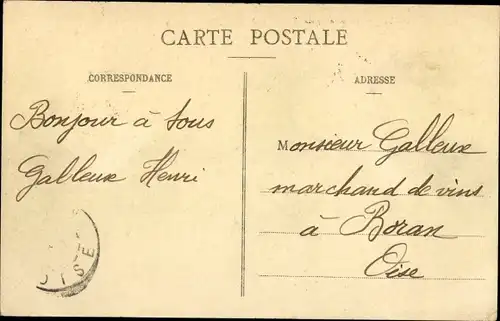 CARTE POSTALE
CORRESPONDANCE
Bonjour à tous
Galleux Henri
ADRESSE
Monsieur Galleux
marchand de vins
à Boran
Oise
OISE